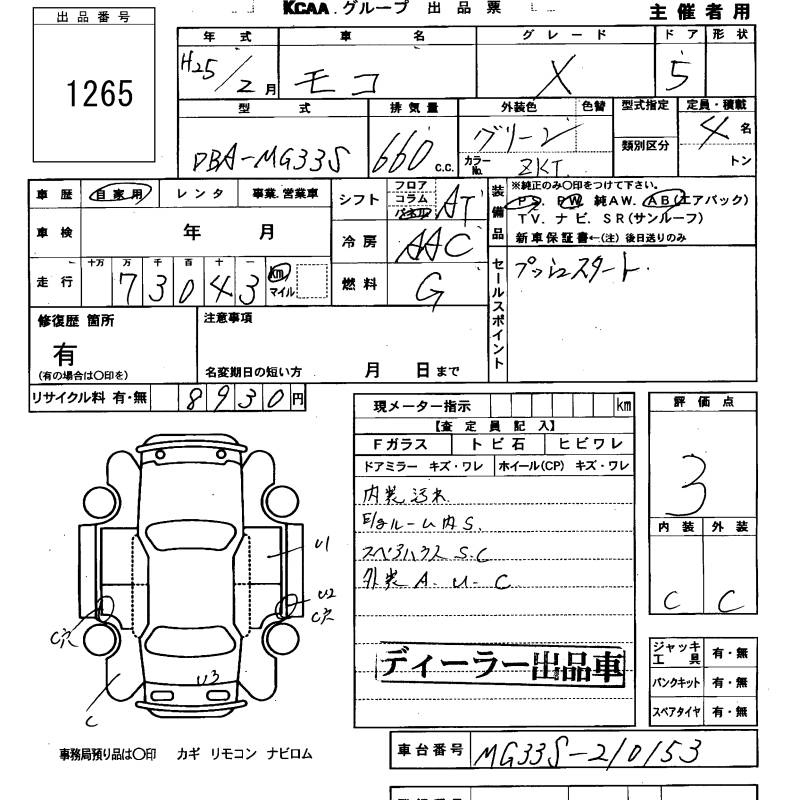 KCAA グループ 出品票
主催者用
出品番号
1265
年式 車名 グレード ドア 形状
H25/2月 モコ X 5
型式 排気量 外装色 色替 型式指定 定員・積載
DBA-MG33S 660 c.c. グリーン カラーNo. ZKT 類別区分 4名 トン
車歴 自家用 レンタ 事業.営業車
シフト フロア コラム パネル AT
装備品 ※純正のみ○印をつけて下さい。
PS. PW. 純AW. AB(エアバック)
TV. ナビ. SR(サンルーフ)
新車保証書←(注)後日送りのみ
車検 年 月
冷房 AAC
走行 十万 万 千 百 十 一
73043 km マイル
燃料 G
セールスポイント プッシュスタート.
修復歴 箇所
有
(有の場合は○印を)
注意事項
名変期日の短い方 月 日まで
リサイクル料 有・無 8930円
現メーター指示 km
【査定員記入】
Fガラス トビ石 ヒビワレ
ドアミラー キズ・ワレ ホイール(CP) キズ・ワレ
内装汚れ
E/gルーム内S.
スペアハウスS.C
外装A.U-C
ディーラー出品車
評価点
3
内装 外装
C C
U1
U2
C穴
C穴
U3
C
ジャッキ工具 有・無
パンクキット 有・無
スペアタイヤ 有・無
事務局預り品は○印 カギ リモコン ナビロム
車台番号 MG33S-210153